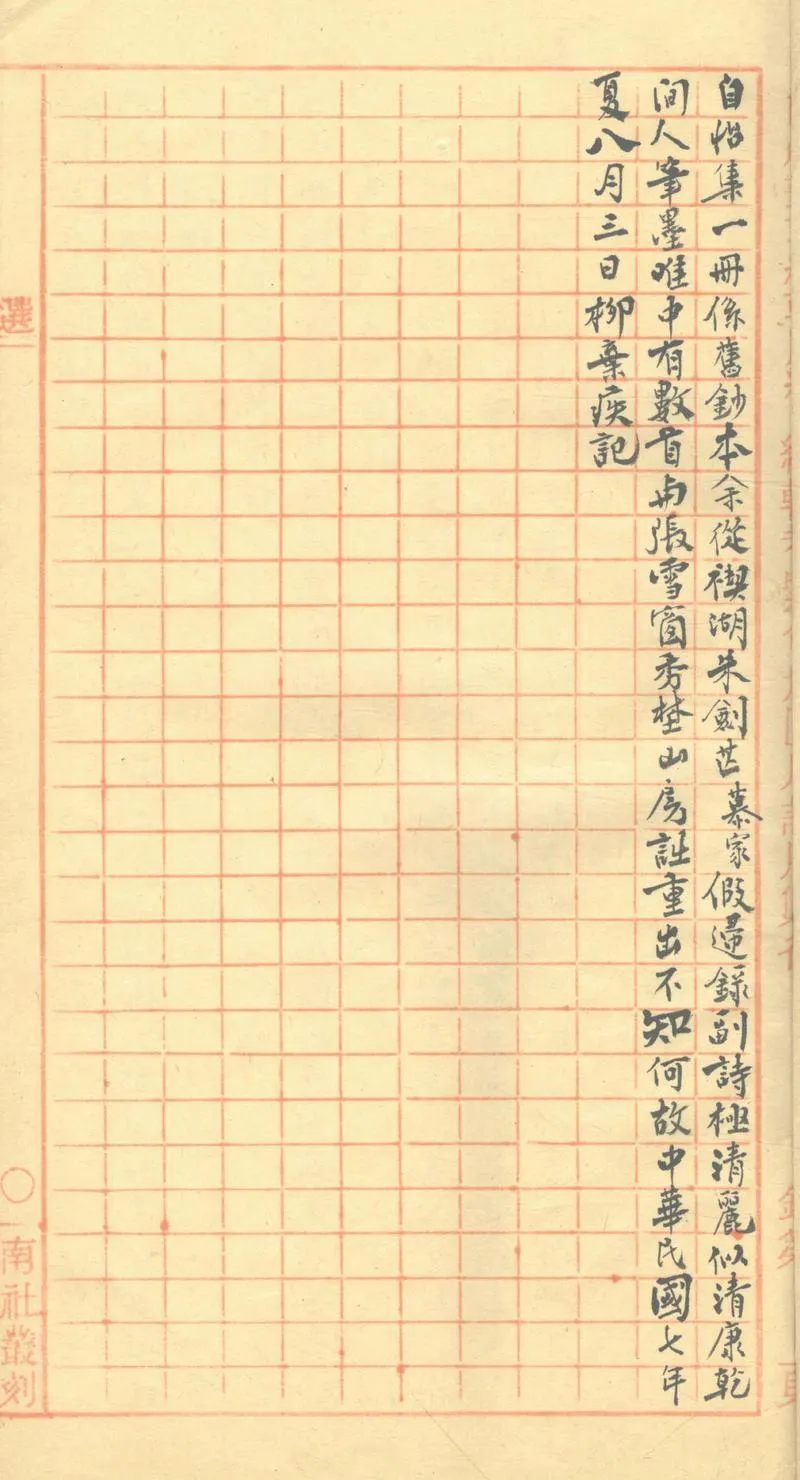 自怡集一冊係舊鈔本余從禊湖朱劍芒慕家假逯錄副詩極清麗似清康乾
間人筆墨唯中有數首与張雪窗秀埜山房詿重出不知何故中華民國七年
夏八月三日柳棄疾記
選
〇
南社叢刻